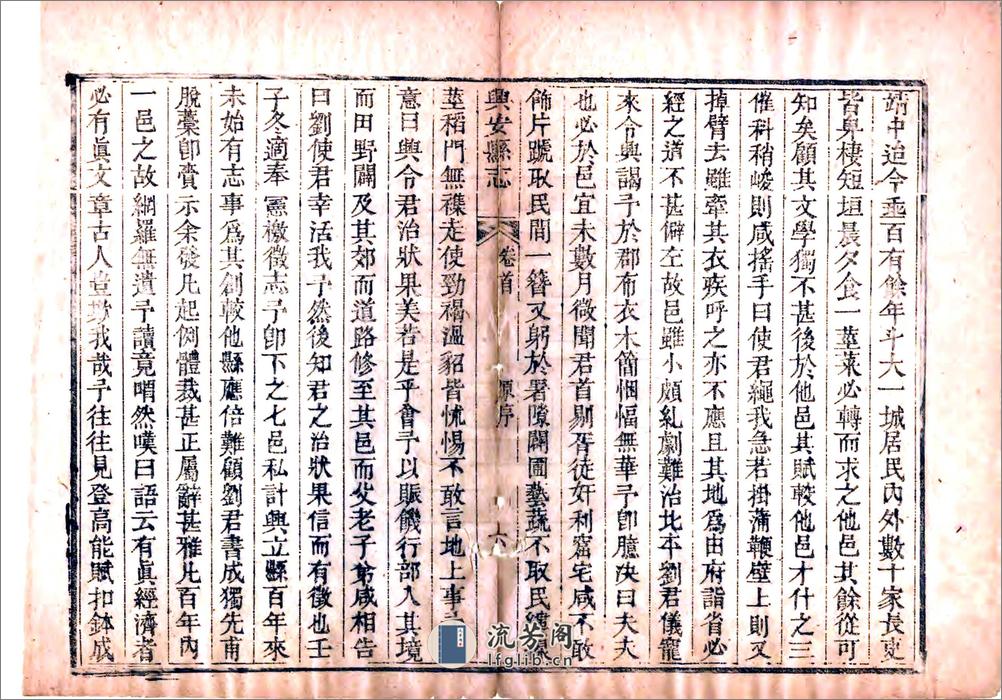 靖中迨今垂百有餘年斗大一城居民內外數十家長吏
皆臬棲短垣晨夕食一莖菜必轉而求之他邑其餘從可
知矣顧其文學獨不甚後於他邑其賦較他邑才什之三
催科稍峻則咸搖手曰使君繩我急若掛蒲鞭壁上則又
掉臂去雖牽其衣疾呼之亦不應且其地爲由府詣省必
經之道不甚僻左故邑雖小頗糺劇難治比本劉君儀寵
來令興謁予於郡布衣木簡悃愊無華予卽臆決曰夫夫
也必於邑宜未數月微聞君首剔胥徒奸利窟宅咸不敢
飾片號取民間一簪又躬於署隙闢圃藝蔬不取民
興安縣志 卷首 原序 六
莖稻門無襍走使勁褐溫貂皆怵惕不敢言地上事
意曰興令君治狀果美若是乎會予以賑饑行部入其境
而田野闢及其郊而道路修至其邑而父老子弟咸相告
曰劉使君幸活我予然後知君之治狀果信而有徵也壬
子冬適奉憲檄徵志予卽下之七邑私計興立縣百年來
未始有志事爲其創較他縣應倍難顧劉君書成獨先甫
脫藁卽賫示余發凡起例體裁甚正屬辭甚雅凡百年內
一邑之故網羅無遺予讀竟喟然嘆曰語云有眞經濟者
必有眞文章古人豈欺我哉予往往見登高能賦扣鉢成
流芳阁
lfglib.cn